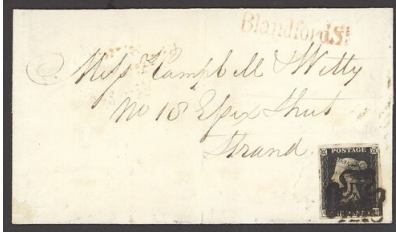 Blandford St
Miss Campbell & Witty
No 18 Essex Street
Strand
POSTAGE